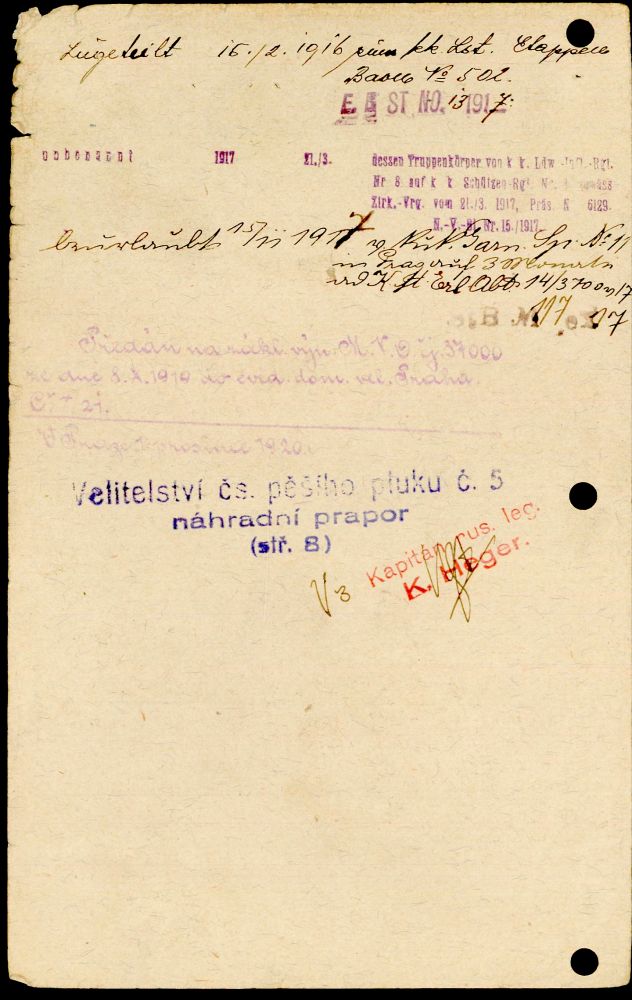 Zugeteilt 15./2. 1916 zum kk Lst. Etappen
Baon No 502.
E. B ST. NO. 13 1917
unbenannt 1917 21./3. dessen Truppenkörper von k. k. Ldw.-Inf.-Rgt.
Nr. 8 auf k. k. Schützen-Rgt. Nr. 8 gemäss
Zirk.-Vrg. vom 21./3. 1917, Präs. N 6129.
N.-V.-Bl. Nr. 15./1917.
beurlaubt 15/II 1917 v. Garn. Sp. No 11
in Prag auf 3 Monate
ad K. M. Erl. Abt. 14/3700
Předán na zákl. výn. M. V. O. čj. 37000
ze dne 8. X. 1919 do evid. dom. vel. Praha.
Čís. 21.
V Praze prosince 1920.
Velitelství čs. pěšího pluku č. 5
náhradní prapor
(stř. 8)
Kapitán rus. leg.
K. Heger.
V z